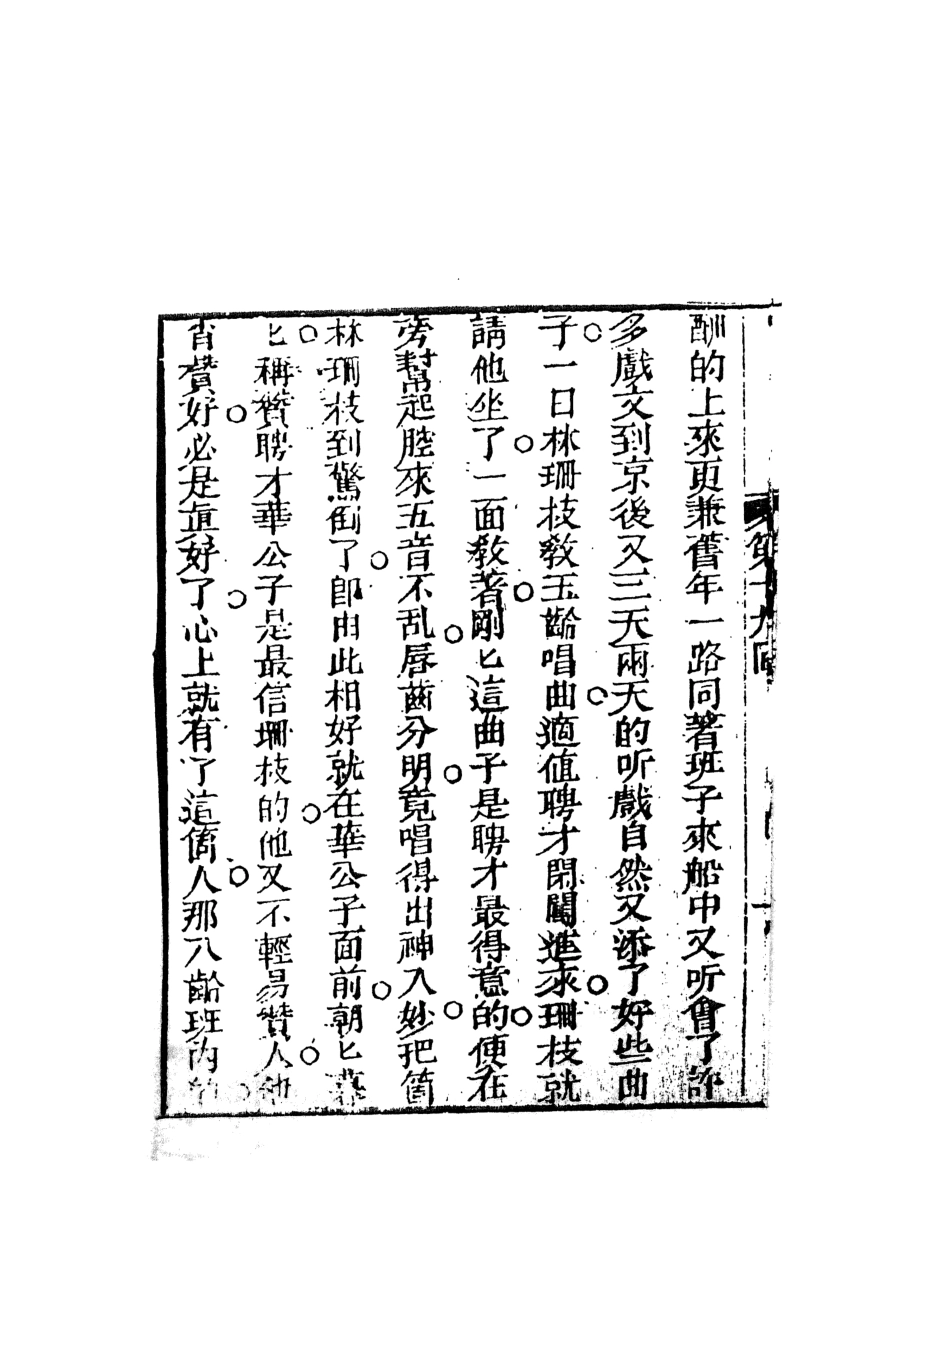 第十九回
酬的上來更兼舊年一路同著班子來船中又听會了許
多戲文到京後又三天兩天的听戲自然又添了好些曲
子一日林珊枝教玉齡唱曲適值聘才閑闖進來珊枝就
請他坐了一面教著剛匕這曲子是聘才最得意的便在
旁幫起腔來五音不乱唇齒分明竟唱得出神入妙把箇
林珊枝到驚倒了卽由此相好就在華公子面前朝匕暮
匕稱贊聘才華公子是最信珊枝的他又不輕易贊人他
肯贊好必是眞好了心上就有了這個人那八齡班內